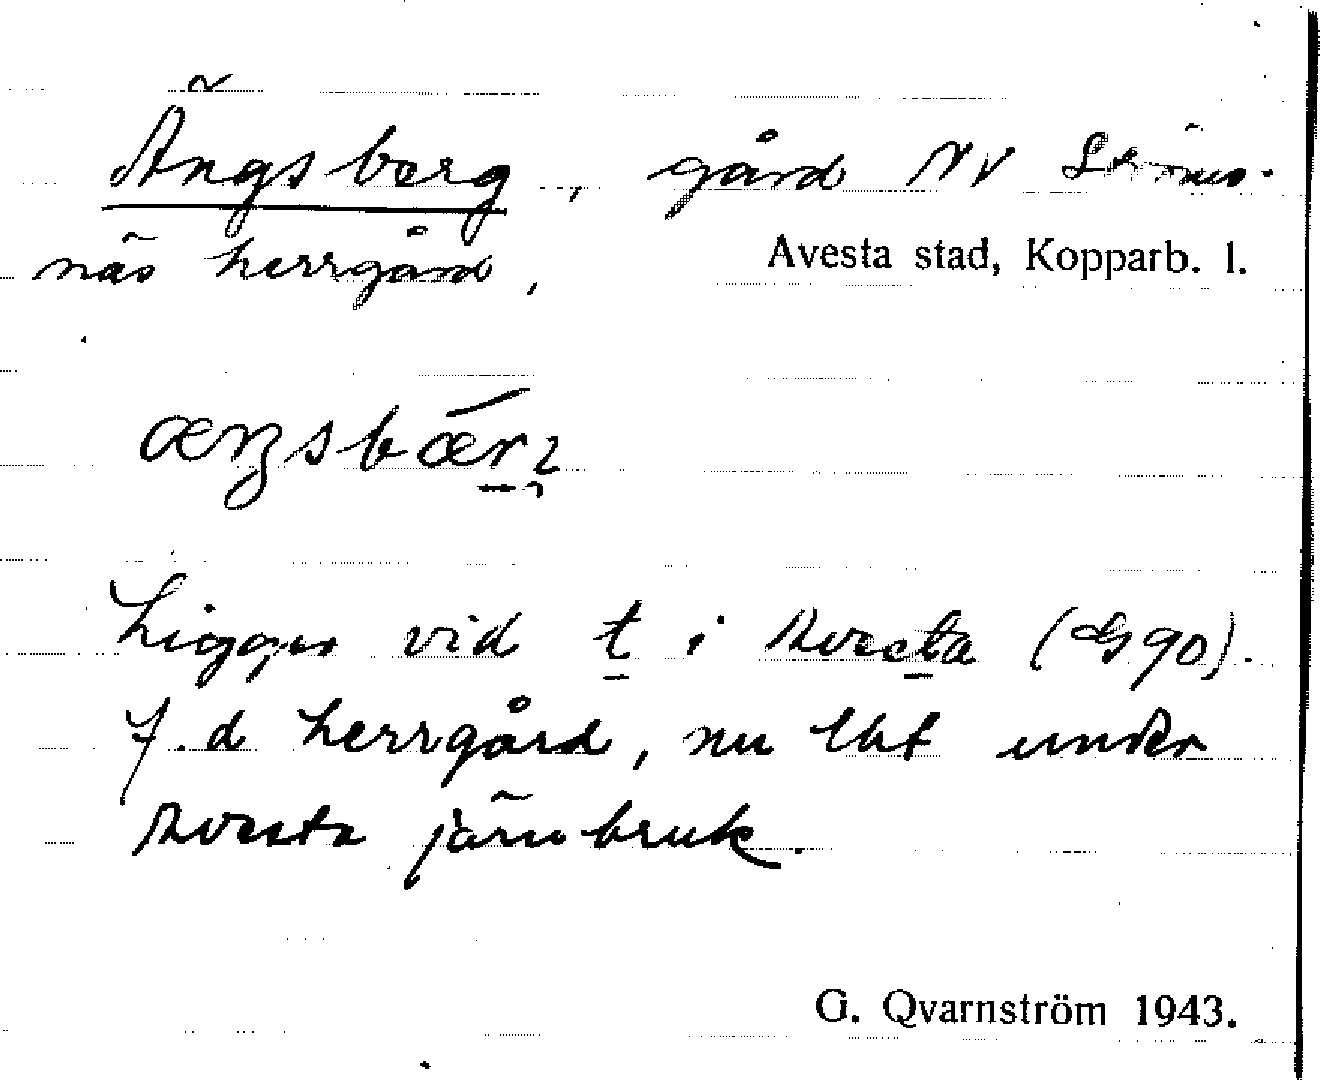 Ängsberg, gård NV Ströms-
näs herrgård,
Avesta stad, Kopparb. l.
Ligger vid t i Avesta (G90).
F.d herrgård, nu lht under
Avesta järnbruk.
G. Qvarnström 1943.